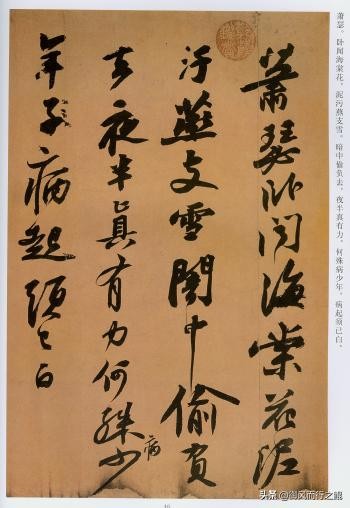 萧瑟。卧闻海棠花，泥污燕支雪。暗中偷负去，夜半真有力。何殊病少年，病起须已白。
蕭瑟臥聞海棠花泥
汙燕支雪闇中偷負
去夜半真有力何殊病少
年子病起頭已白
头条 @御风而行之鲲